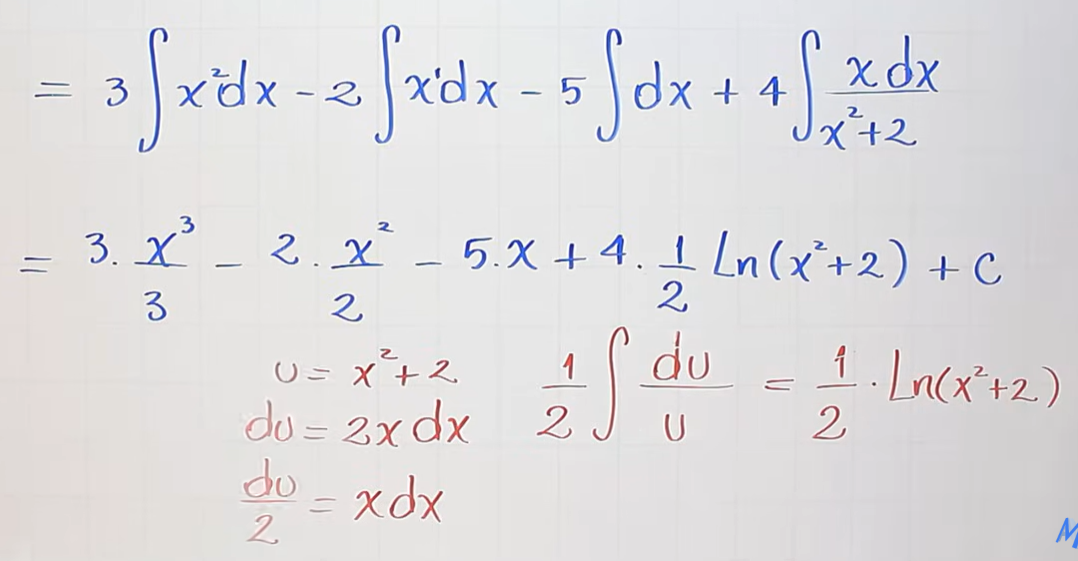 = 3 ∫ x² dx - 2 ∫ x¹ dx - 5 ∫ dx + 4 ∫ x dx / x²+2
= 3. x³/3 - 2. x²/2 - 5.x + 4. 1/2 Ln(x²+2) + C
u = x²+2
du = 2x dx
du/2 = x dx
1/2 ∫ du/u = 1/2 . Ln(x²+2)
M